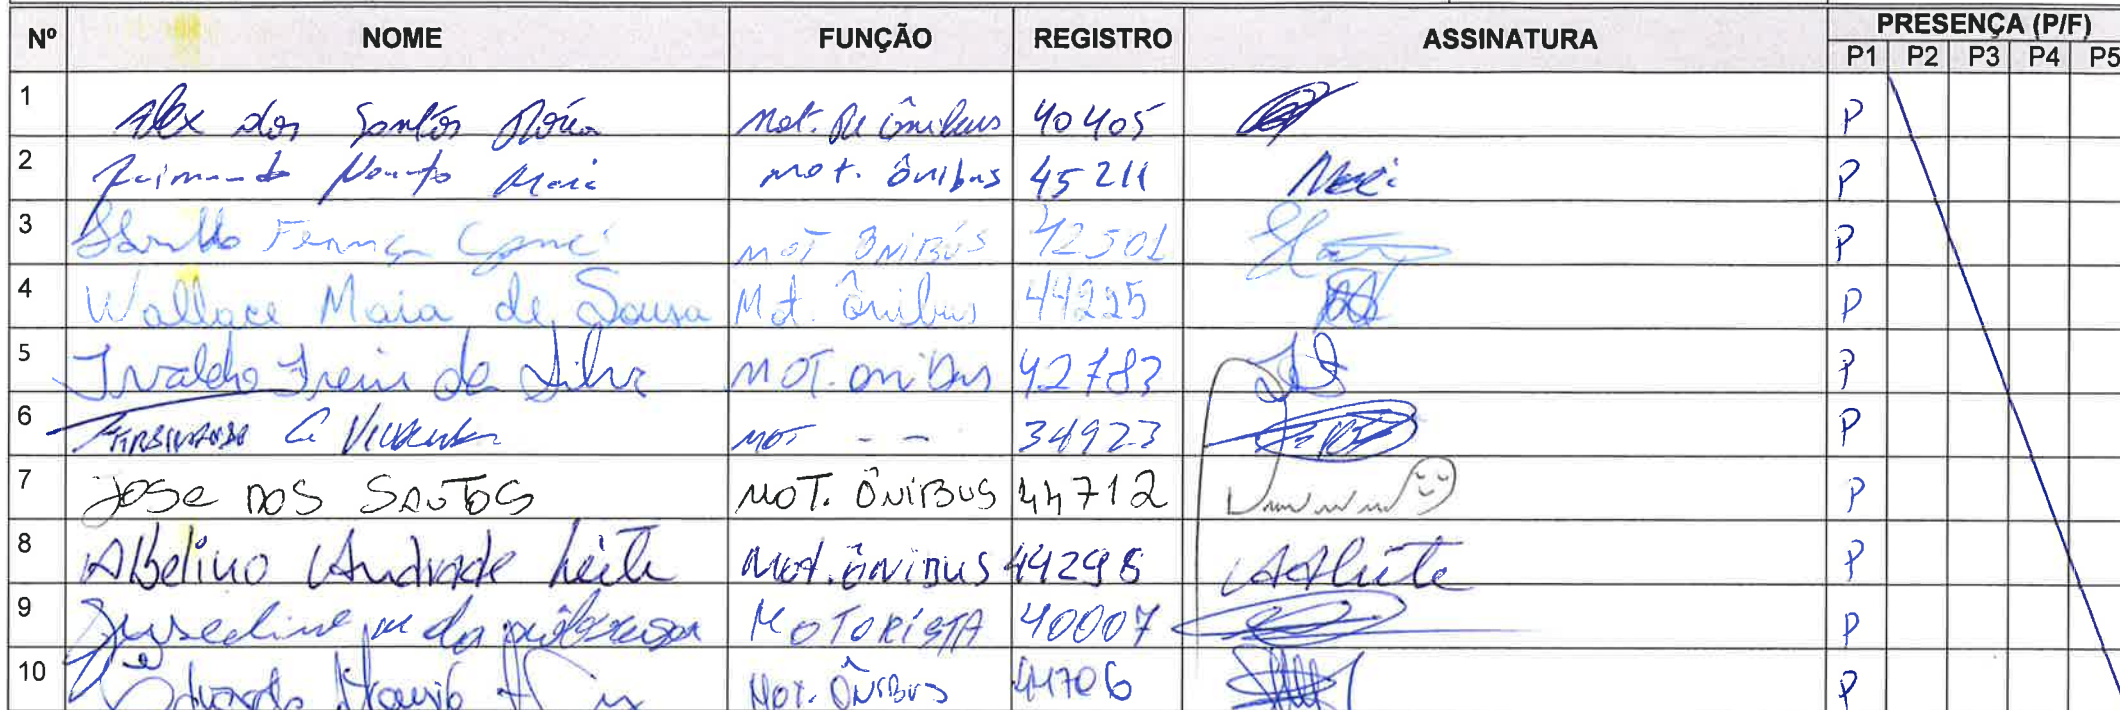 Nº NOME FUNÇÃO REGISTRO ASSINATURA PRESENÇA (P/F)
P1 P2 P3 P4 P5
1 Alex dos Santos Mot. de ônibus 40405 P
2 Raimundo Nonato Maia mot. ônibus 45211 P
3 MOT ÔNIBUS 42501 P
4 Wallace Maia de Sousa Mot. ônibus 44225 P
5 Ivaldo Freire da Silva MOT. onibus 42783 P
6 MOT - - 34923 P
7 Jose DOS SANTOS MOT. ÔNIBUS 44712 P
8 Abelino Andrade Leite Mot. ÔNIBUS 44298 AALeite P
9 MOTORISTA 40007 P
10 Eduardo MOT. ÔNIBUS 44706 P